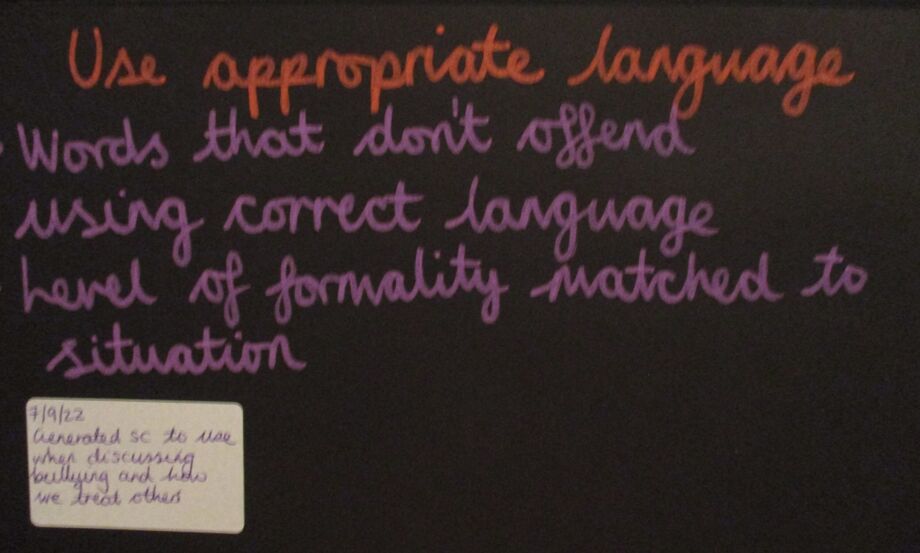 Use appropriate language
Words that don't offend
using correct language
Level of formality matched to
situation
7/9/22
Generated sc to use
when discussing
bullying and how
we treat others